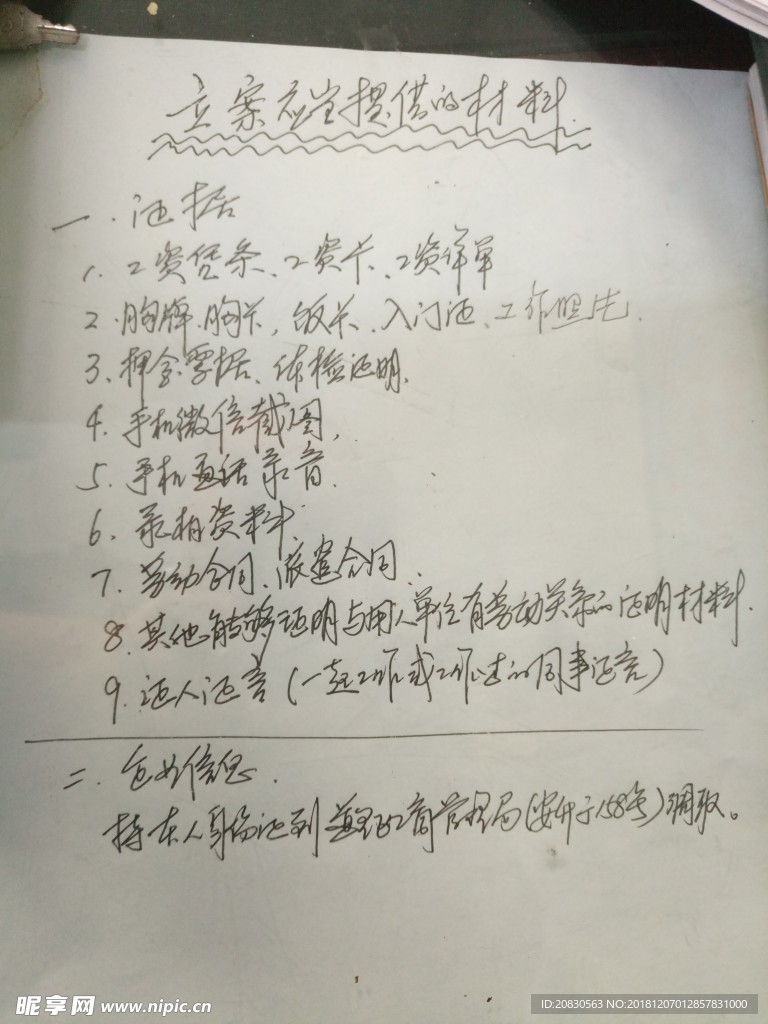 立案应当提供的材料
一.证据
1.工资凭条、工资卡、工资详单
2.胸牌.胸卡,饭卡、入门证、工作照片.
3、押金票据、体检证明.
4.手机微信截图,
5.手机通话录音.
6.录相资料
7.劳动合同、派遣合同
8.其他能够证明与用人单位有劳动关系的证明材料.
9.证人证言(一起工作或工作过的同事证言)
二.企业信息.
持本人身份证到道里区工商管理局(安升子158号)调取。
昵享网 www.nipic.cn
ID:20830563 NO:20181207012857831000